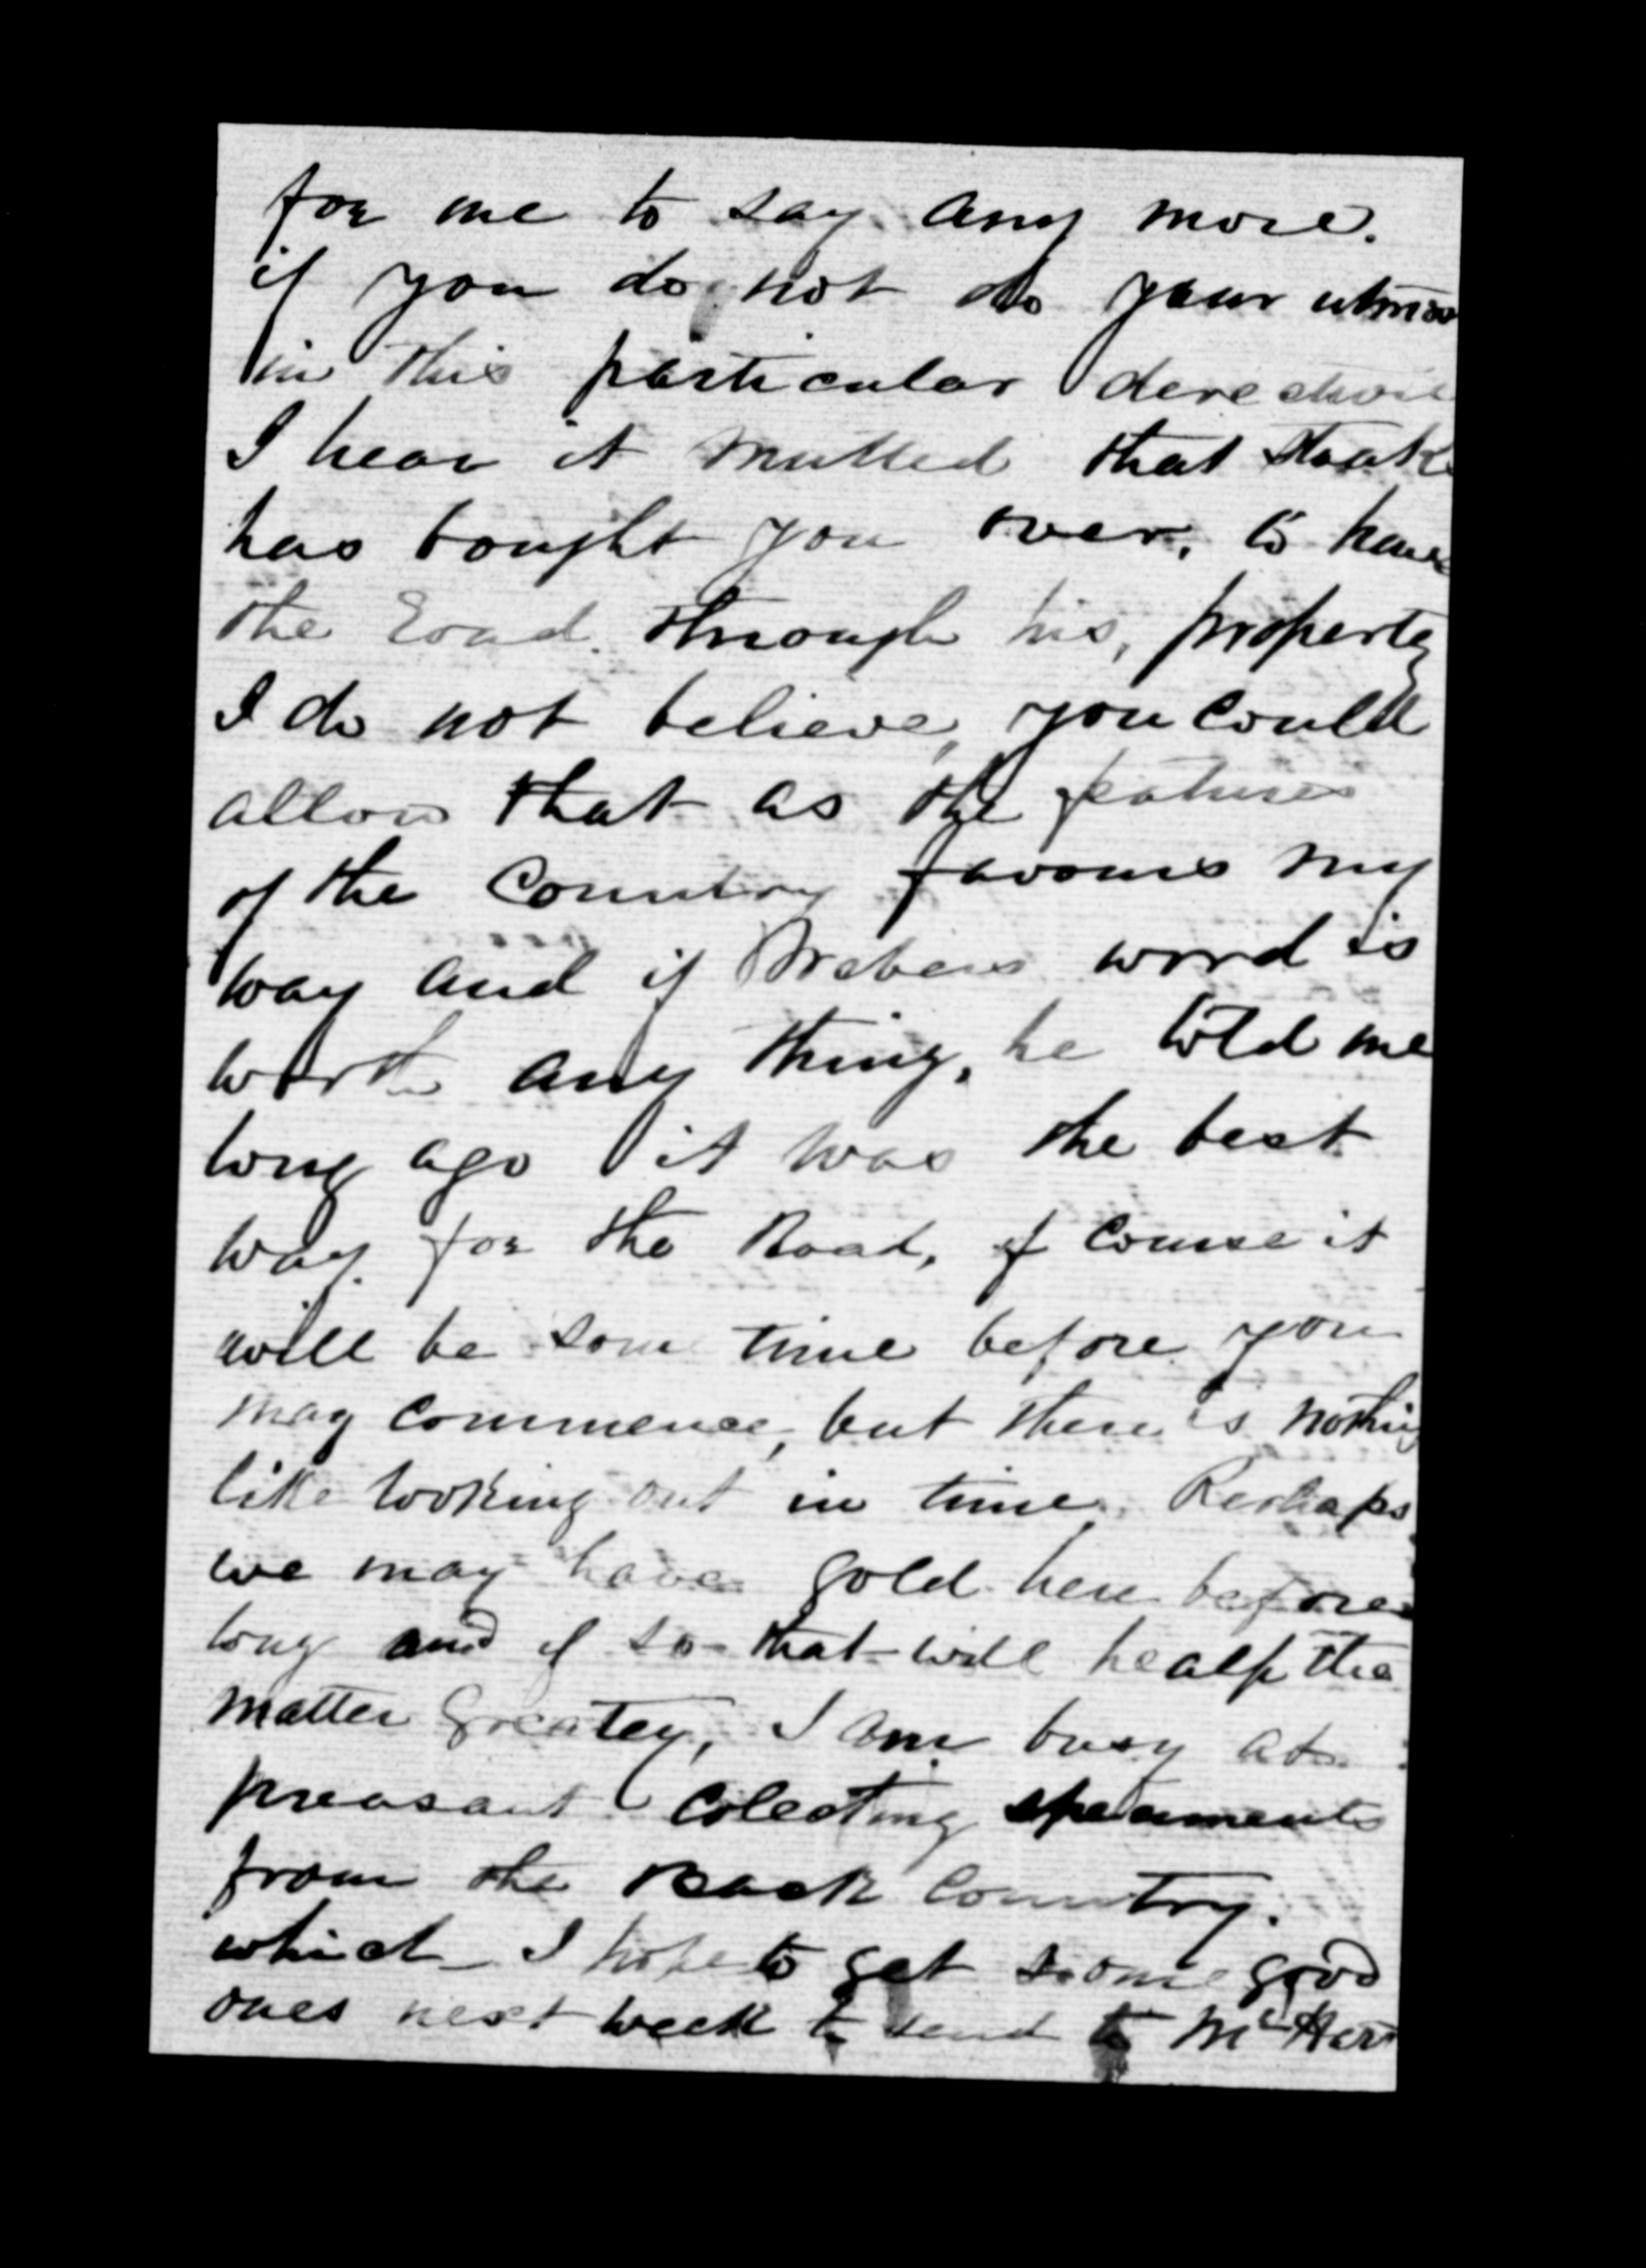 for me to say any more.
if you do not do your utmos
in this particular derection
I hear it mutted that
has bought you over, to have
the Road through his, property
I do not believe, you could
allow that as the features
of the Country favours my
way and if word is
worth any thing, he told me
long ago it was the best
way for the Road, of course it
will be some time before you
may commence, but there is nothing
like looking out in time. Perhaps
we may have gold here before
long and if so that will healp the
matter greatey, I am busy at
preasant Colecting speciments
from the Back Country.
which I hope to get some good
ones next week to send to Mr